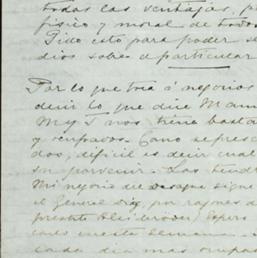 todas las ventajas, p
físico y moral de todos
Pido esto para poder se
dios sobre el particular
Por lo que toca á negocios
decir lo que dice Mann
My J nos tiene basta
y ocupados. Como se pres
dos, difícil es decir cual
su porvenir. Los tendr
Mis negocio del desague sigue
el General Diaz, por razones de
prestito
esta semana
cada dia mas ocupa